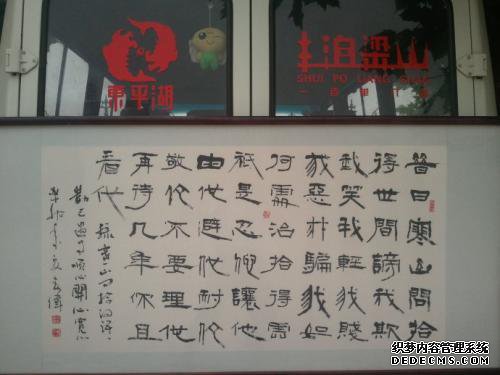 东平湖
水泊梁山
SHUI PO LIANG SHAN
昔日寒山問拾
得世間謗我欺
我笑我輕我賤
我惡我騙我如
何處治拾得雲
祇是忍他讓他
由他避他耐他
敬他不要理他
再待几年你且
看他
织梦内容管理系统
DEDECMS.COM